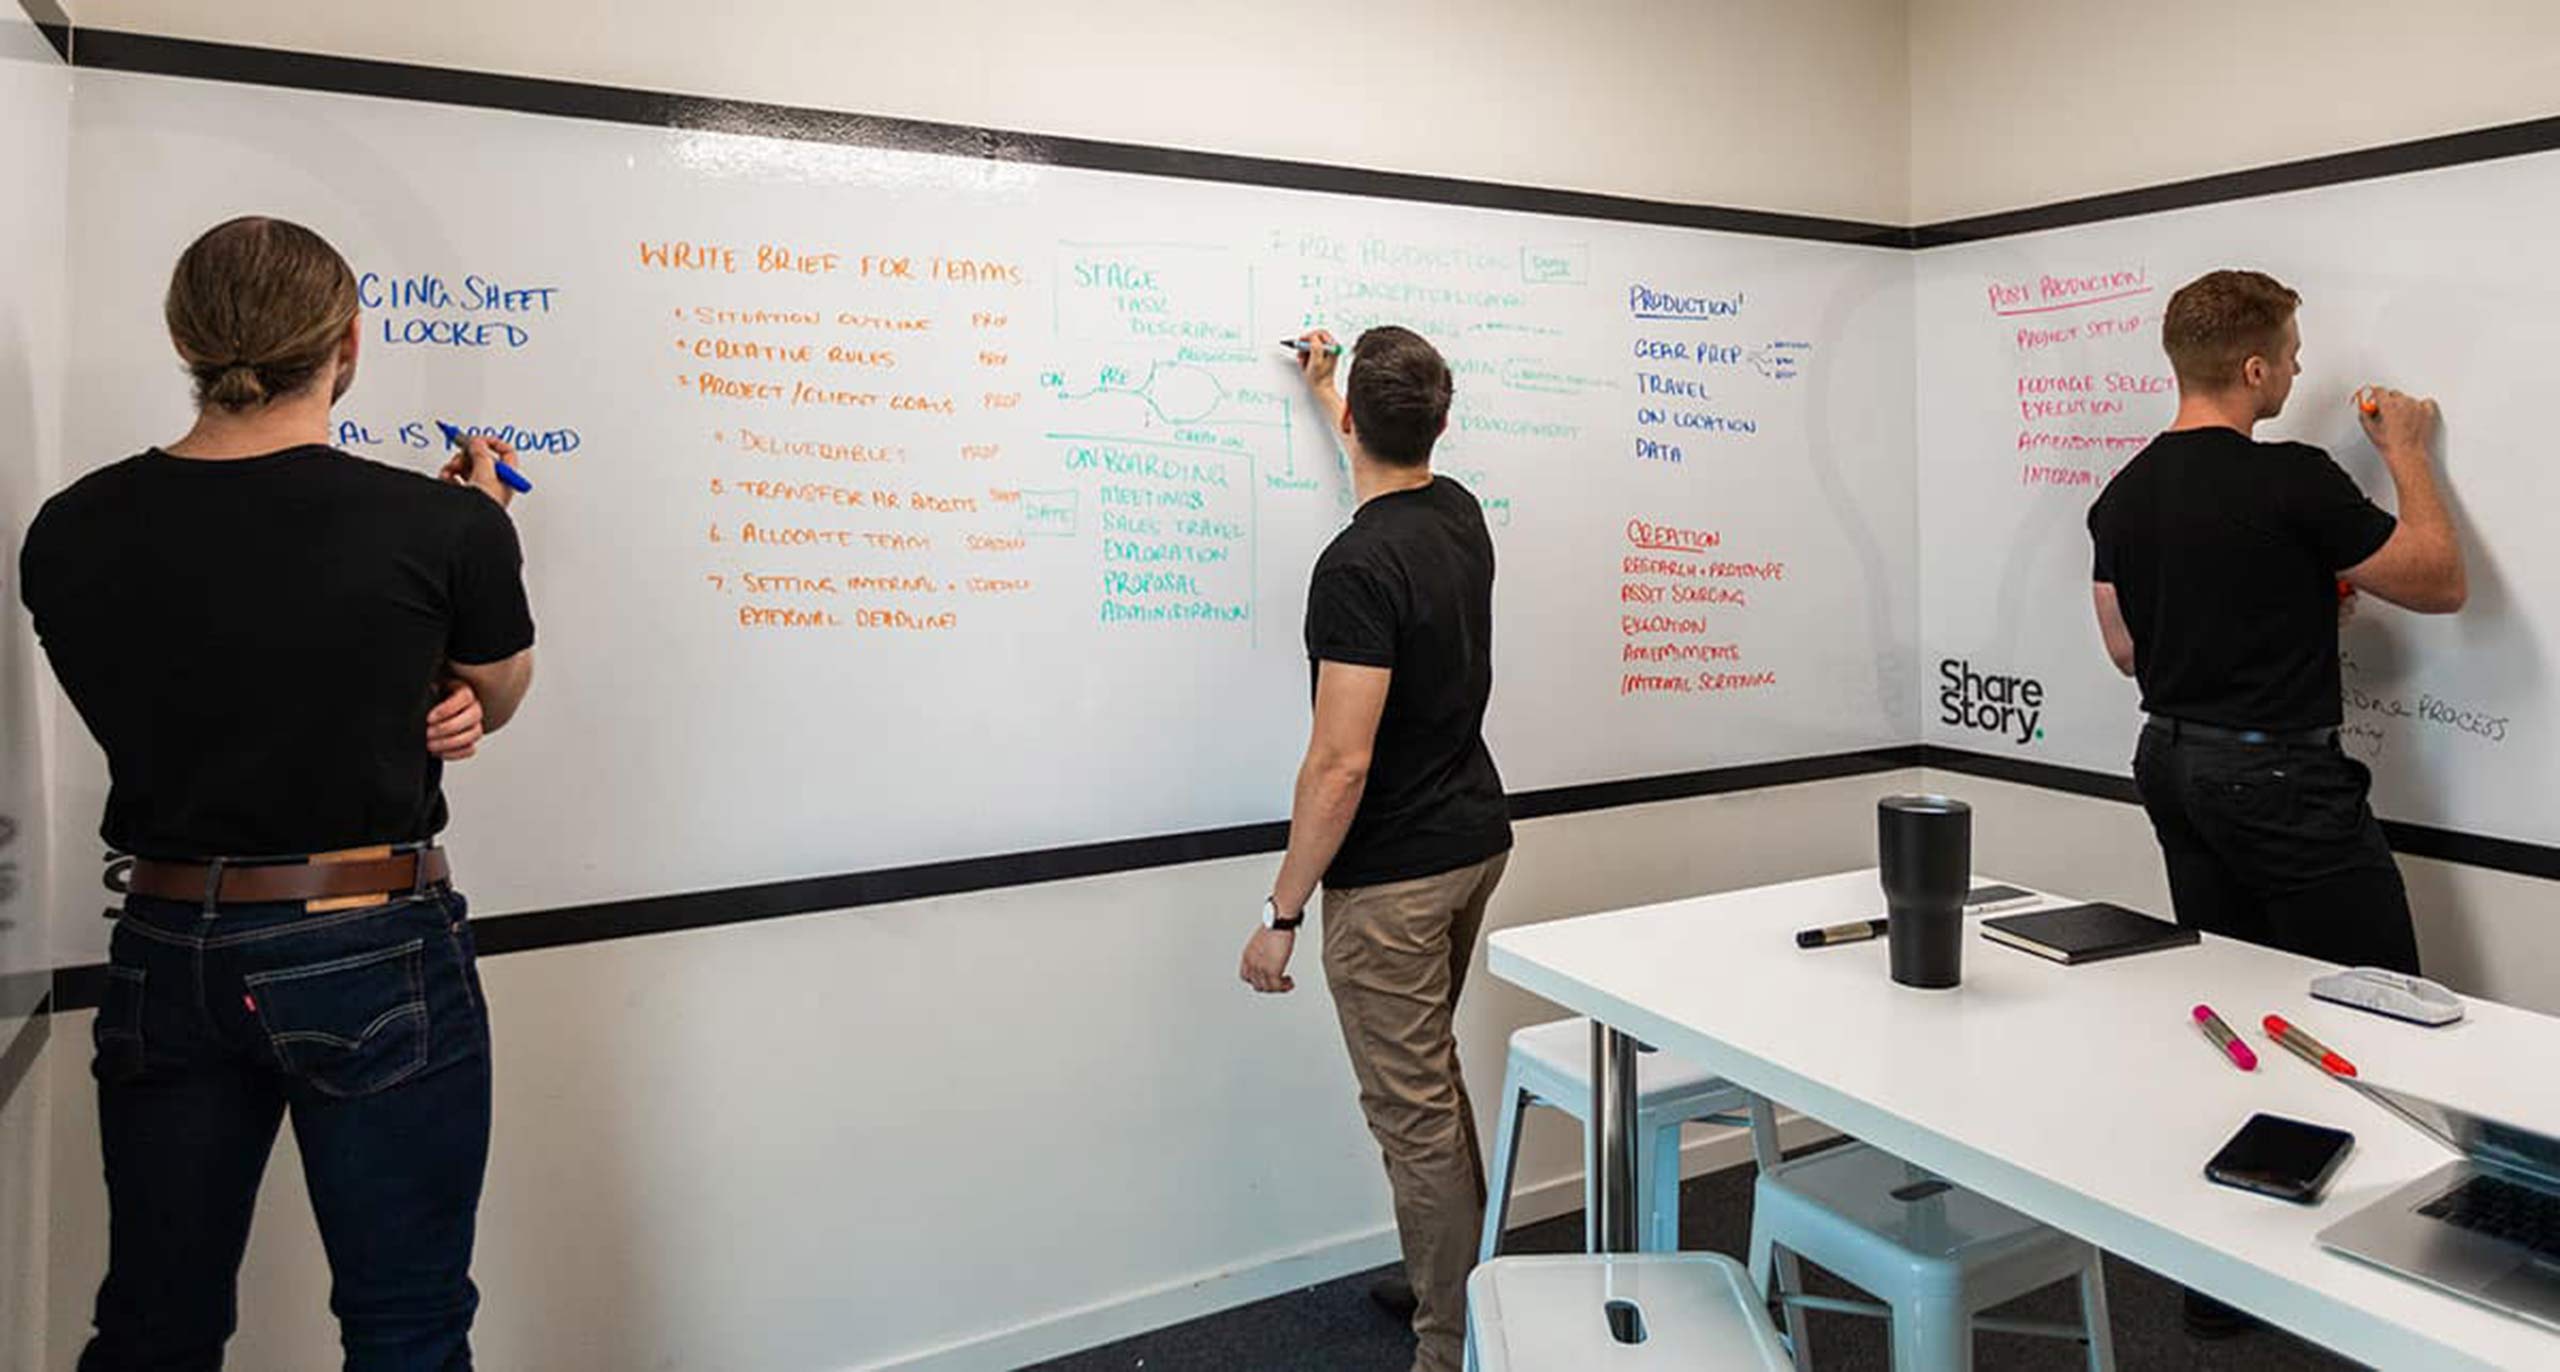 CING SHEET
LOCKED
AL IS APPROVED
WRITE BRIEF FOR TEAMS
1. SITUATION OUTLINE PROP
CREATIVE RULES
3 PROJECT/CLIENT GOALS PROP
DELIVERABLES PROP
5. TRANSFER
6. ALLOCATE TEAM
7. SETTING INTERNAL +
EXTERNAL DEADLINES
STAGE
TASK
DESCRIPTION
PRODUCTION
ON PRE POST
CREATION
DATE
ONBOARDING
MEETINGS
SALES TRAVEL
EXPLORATION
PROPOSAL
ADMINISTRATION
PRE PRODUCTION
2.1 CONCEPTUALISATION
2.2
DEVELOPMENT
PRODUCTION
GEAR PREP
TRAVEL
ON LOCATION
DATA
CREATION
RESEARCH + PROTOTYPE
ASSET SOURCING
EXECUTION
AMENDMENTS
INTERNAL SCREENING
POST PRODUCTION
PROJECT SET UP
FOOTAGE SELECT
EXECUTION
AMENDMENTS
INTERNAL
Share
Story.
PROCESS